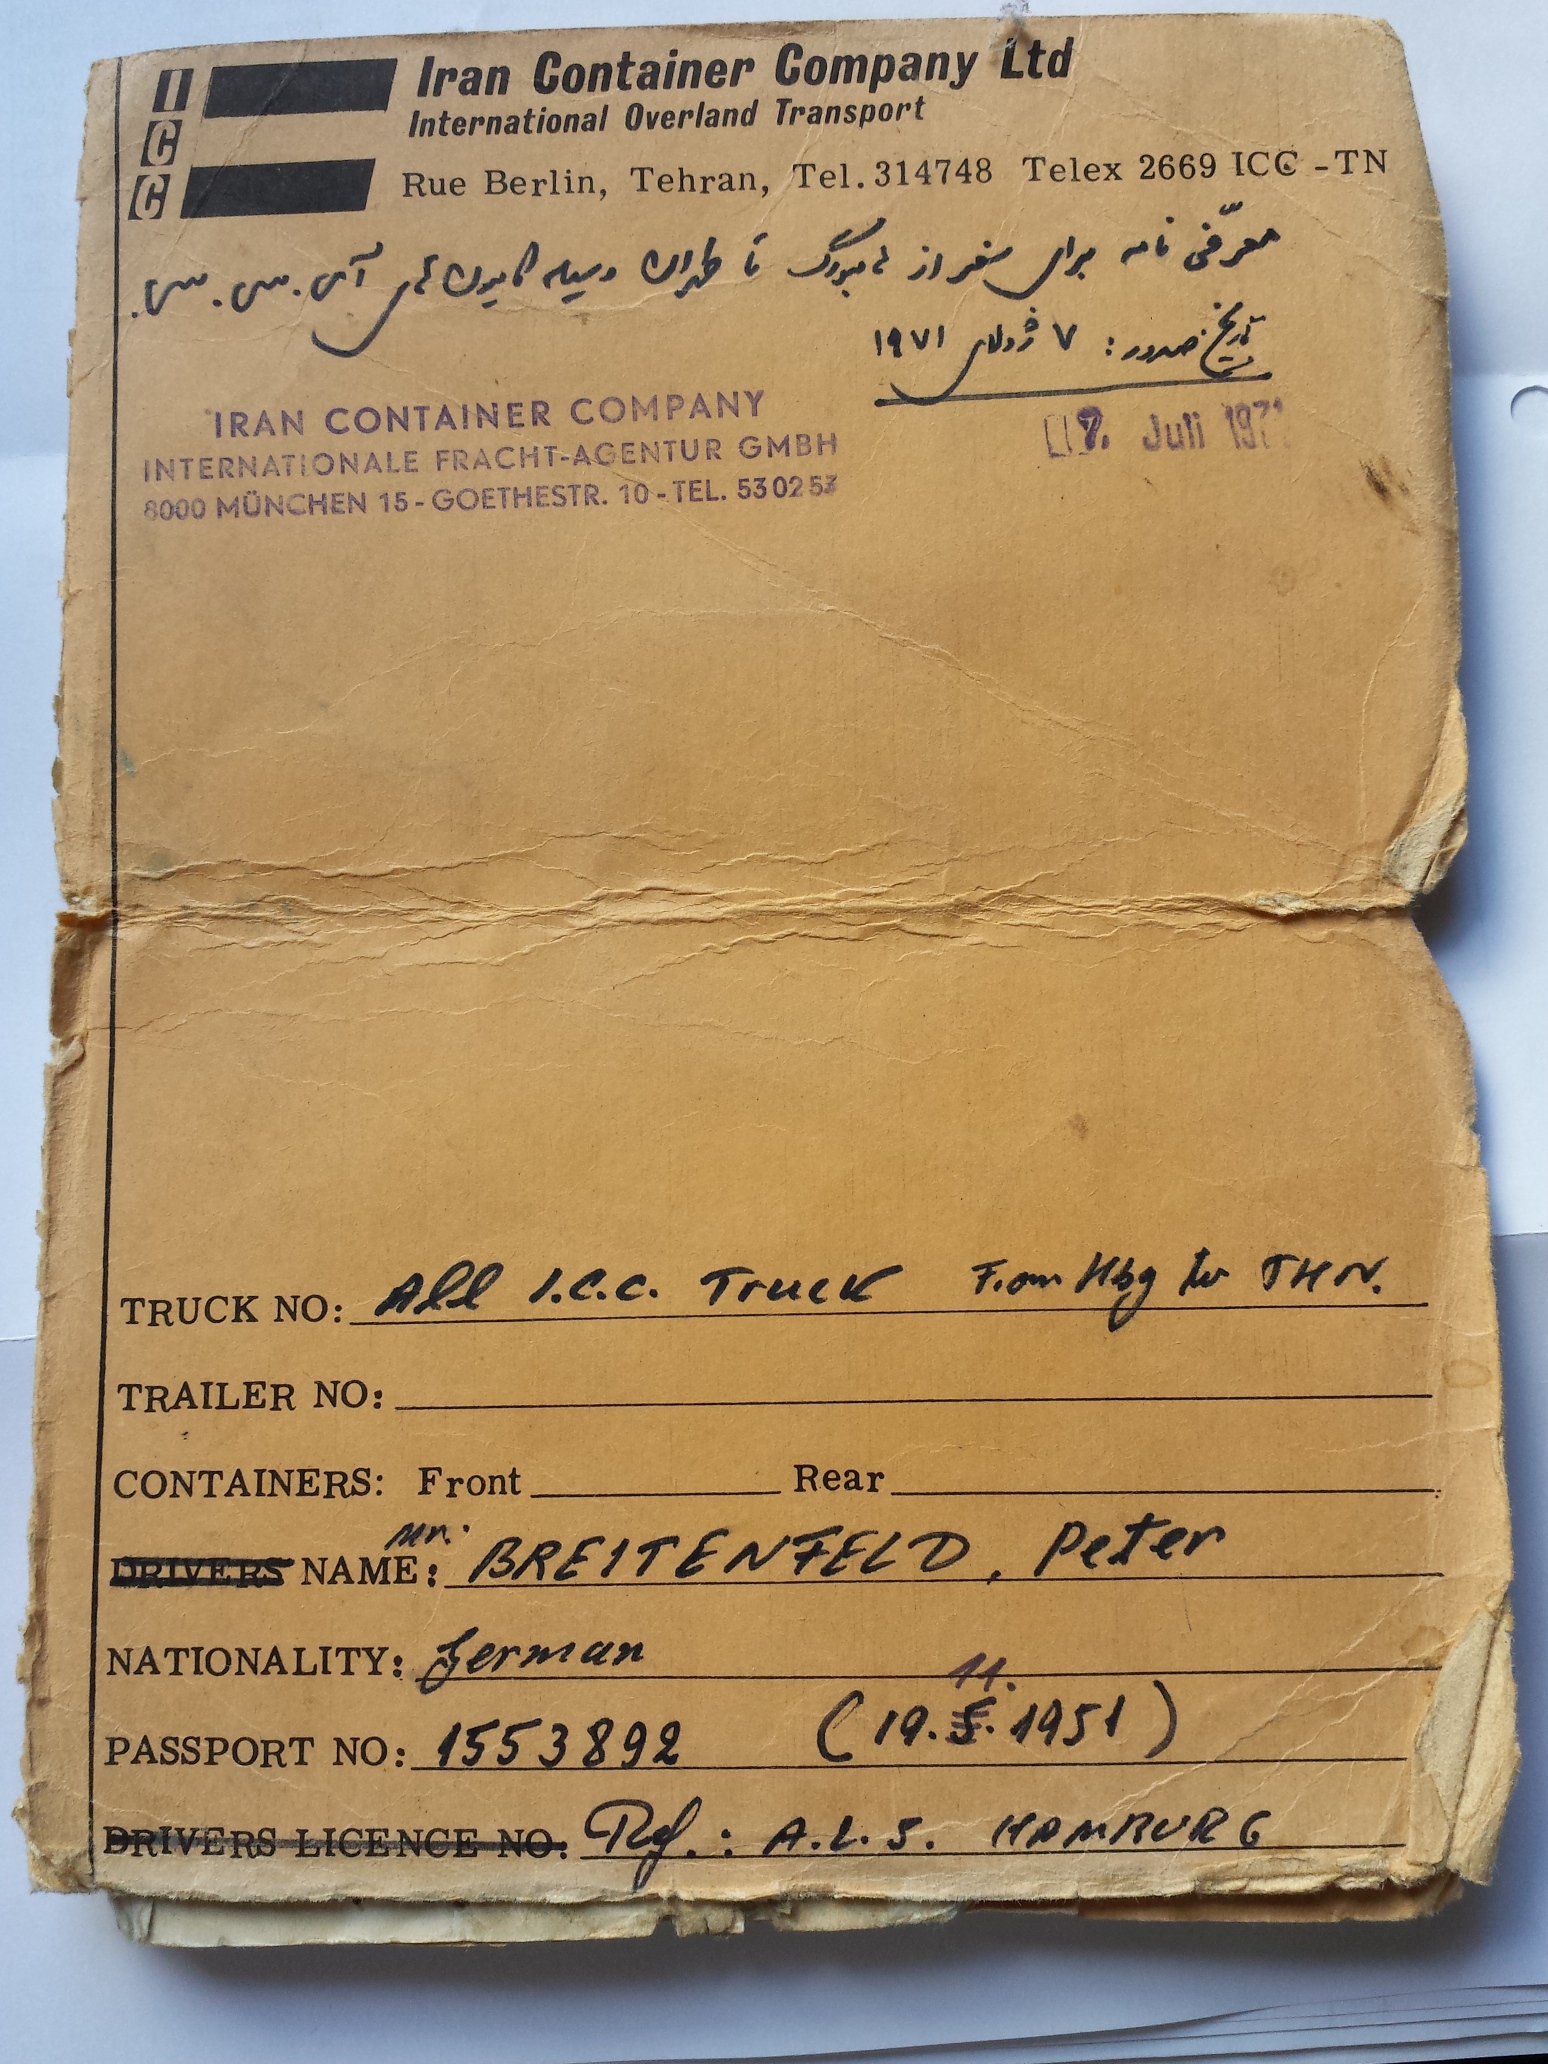 ICC
Iran Container Company Ltd
International Overland Transport
Rue Berlin, Tehran, Tel. 314748 Telex 2669 ICC -TN
معرّفی نامه برای سفر از هامبورگ تا طهران وسیله کامیون های آی. سی. سی.
تاریخ صدور: ۷ ژولای ۱۹۷۱
IRAN CONTAINER COMPANY
INTERNATIONALE FRACHT-AGENTUR GMBH
8000 MÜNCHEN 15 - GOETHESTR. 10 - TEL. 530253
7. Juli 1971
TRUCK NO: All I.C.C. Truck From Hbg to THN.
TRAILER NO:
CONTAINERS: Front Rear
DRIVERS NAME: Mr. BREITENFELD, Peter
NATIONALITY: German
PASSPORT NO: 1553892 (19.11.1951)
DRIVERS LICENCE NO: Ref.: A.L.S. HAMBURG